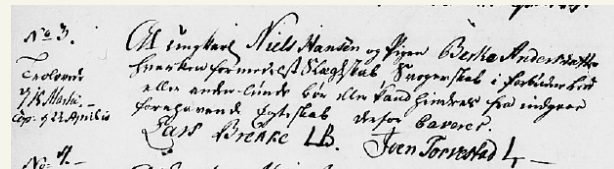 No 3.
Trolovede
d 13 Martii. –
Cop. d 23 Aprilis
At ungkarl Niels Hansen og Pigen Berthe Andersdatter
hverken formedelst Slegtskab, Svogerskab i forbudne Leed
eller anderlunde bør eller kand hindres fra indgaae
forehavende Egteskab derfor Caverer.
Lars Brekke LB. Iven Torvestad
No 4.